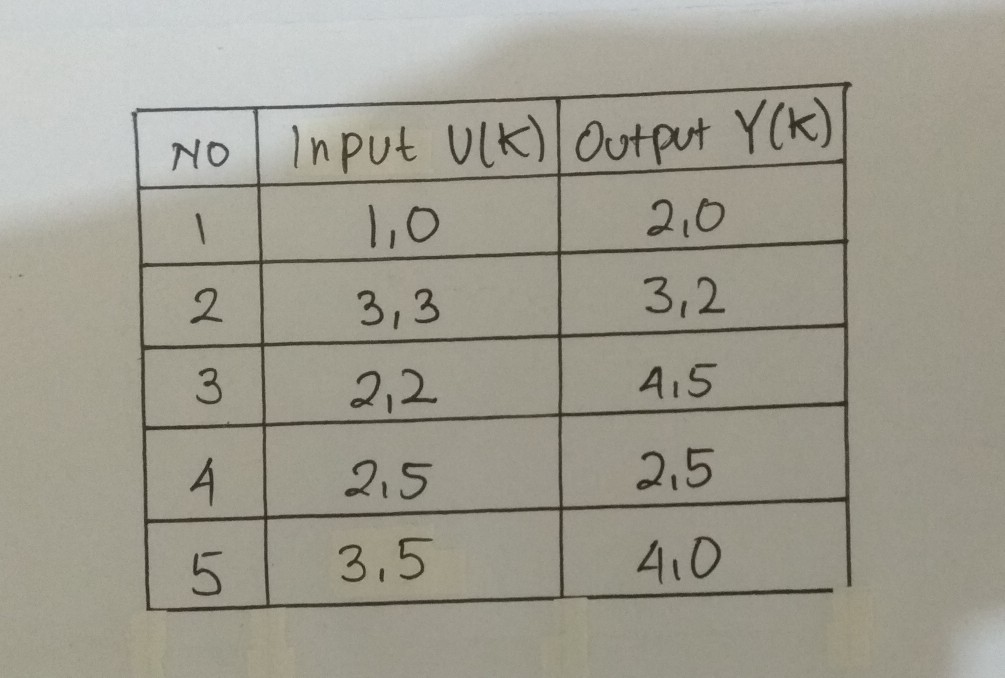 NO Input U(K) Output Y(K)
1 1,0 2,0
2 3,3 3,2
3 2,2 4,5
4 2,5 2,5
5 3,5 4,0